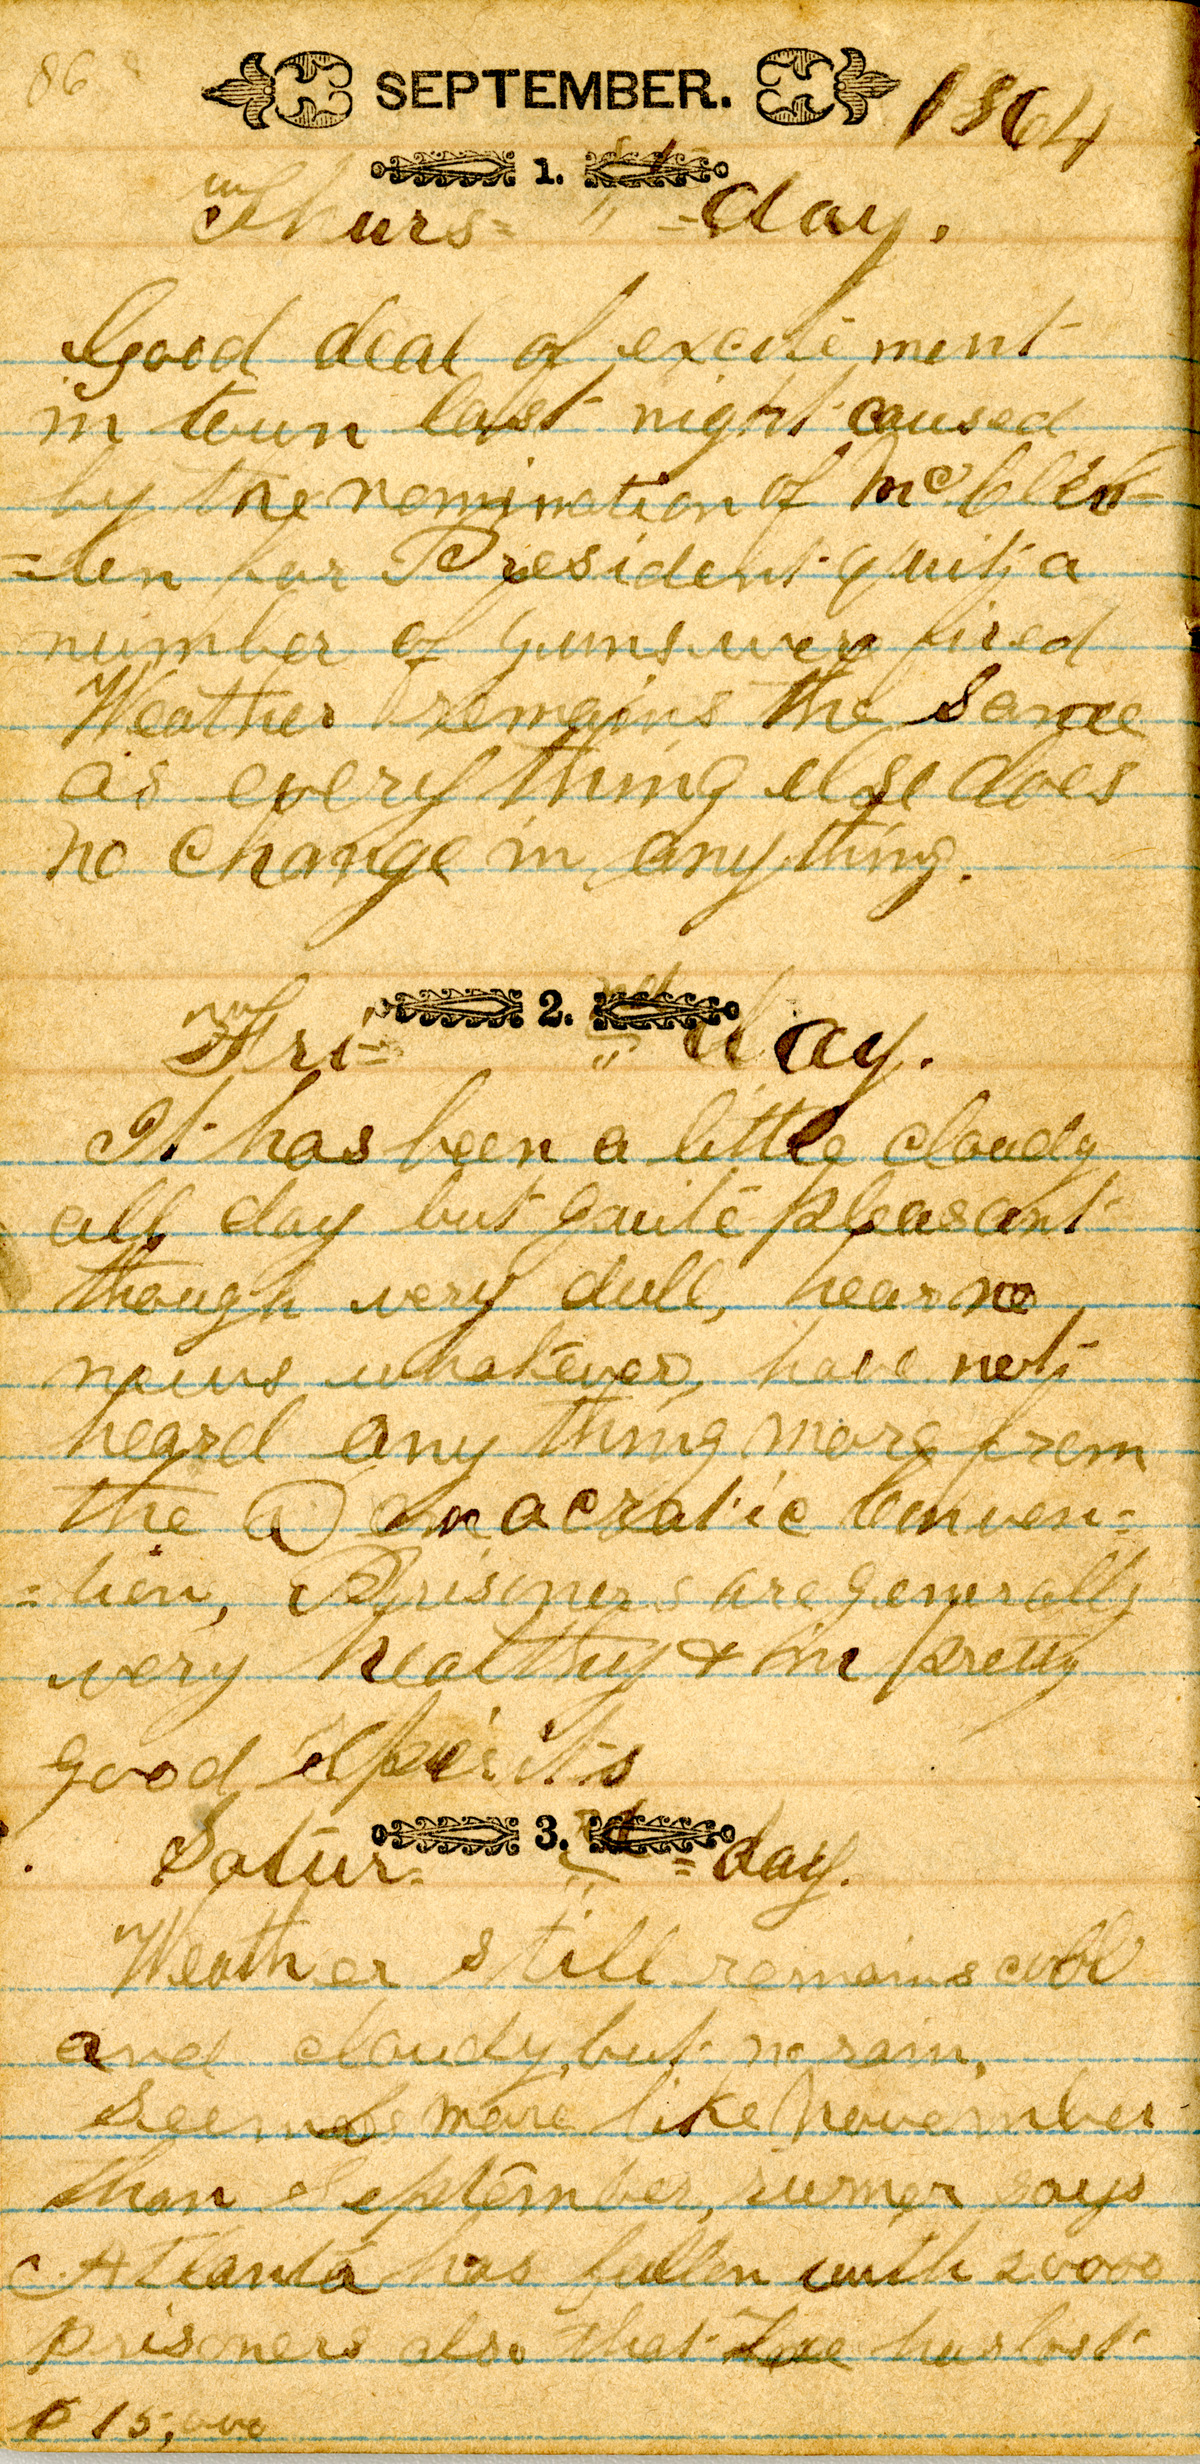 86
SEPTEMBER. 1864
1. st
Thurs= " =day.
Good deal of excitement
in town last night caused
by the nomination of McClen=
=len for President quite a
number of guns were fired
Weather remains the same
as every thing else does
no change in any thing.
2. nd
Fri= " day.
It has been a little cloudy
all day but quite pleasant
though very dull, hear no
news whatever, have not
heard any thing more from
the Democratic Conven=
=tion, Prisoners are generally
very healthy & in pretty
good spirits
3. rd
Satur= " =day.
Weather still remains cool
and cloudy, but no rain,
Seems more like November
than September, rumer says
Atlanta has fallen with 20000
prisoners also that Lee has lost
15,000